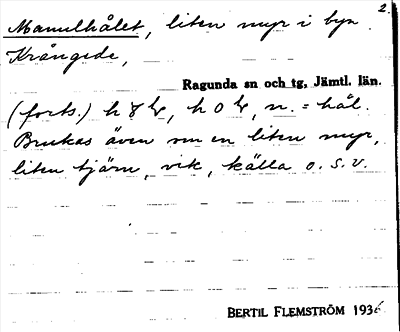 2.
Manulhålet, liten myr i byn
Krångede,
Ragunda sn och tg, Jämtl. län.
(forts.) h 8 , h o , n. = hål.
Brukas även om en liten myr,
liten tjärn, vik, källa o. s. v.
BERTIL FLEMSTRÖM 1936